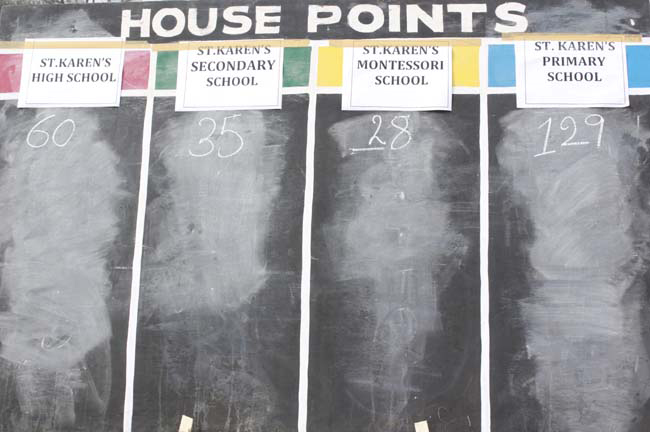 HOUSE POINTS
ST.KAREN'S
HIGH SCHOOL
ST.KAREN'S
SECONDARY
SCHOOL
ST.KAREN'S
MONTESSORI
SCHOOL
ST. KAREN'S
PRIMARY
SCHOOL
60
35
28
129